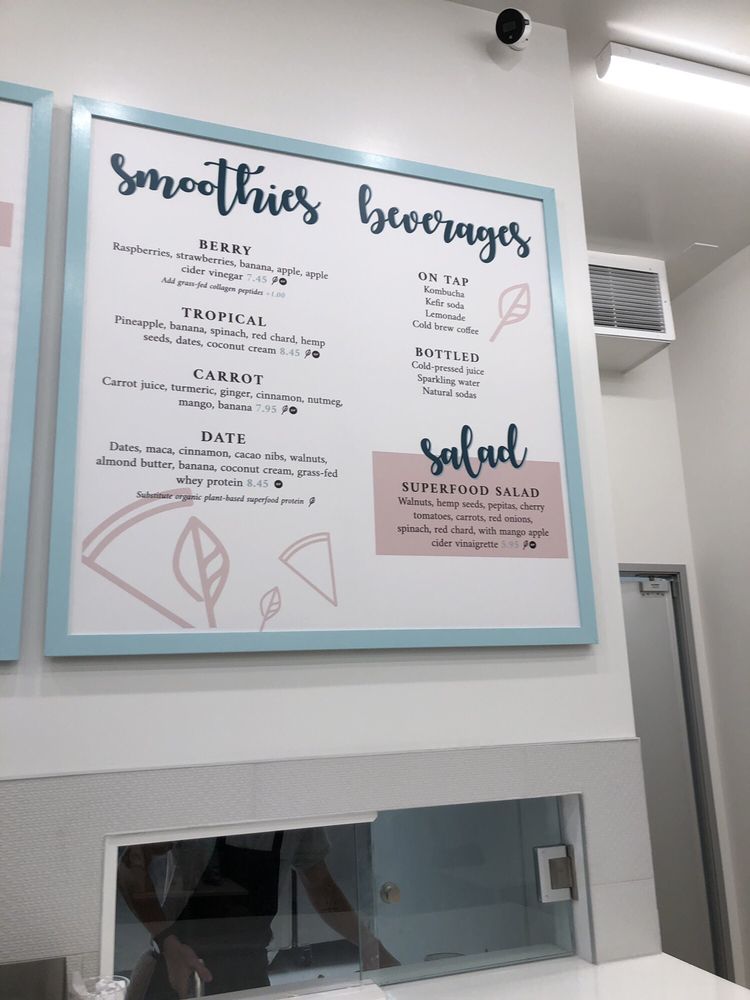 smoothies
BERRY
Raspberries, strawberries, banana, apple, apple
cider vinegar 7.45
Add grass-fed collagen peptides +1.00
TROPICAL
Pineapple, banana, spinach, red chard, hemp
seeds, dates, coconut cream 8.45
CARROT
Carrot juice, turmeric, ginger, cinnamon, nutmeg,
mango, banana 7.95
DATE
Dates, maca, cinnamon, cacao nibs, walnuts,
almond butter, banana, coconut cream, grass-fed
whey protein 8.45
Substitute organic plant-based superfood protein
beverages
ON TAP
Kombucha
Kefir soda
Lemonade
Cold brew coffee
BOTTLED
Cold-pressed juice
Sparkling water
Natural sodas
salad
SUPERFOOD SALAD
Walnuts, hemp seeds, pepitas, cherry
tomatoes, carrots, red onions,
spinach, red chard, with mango apple
cider vinaigrette 5.95